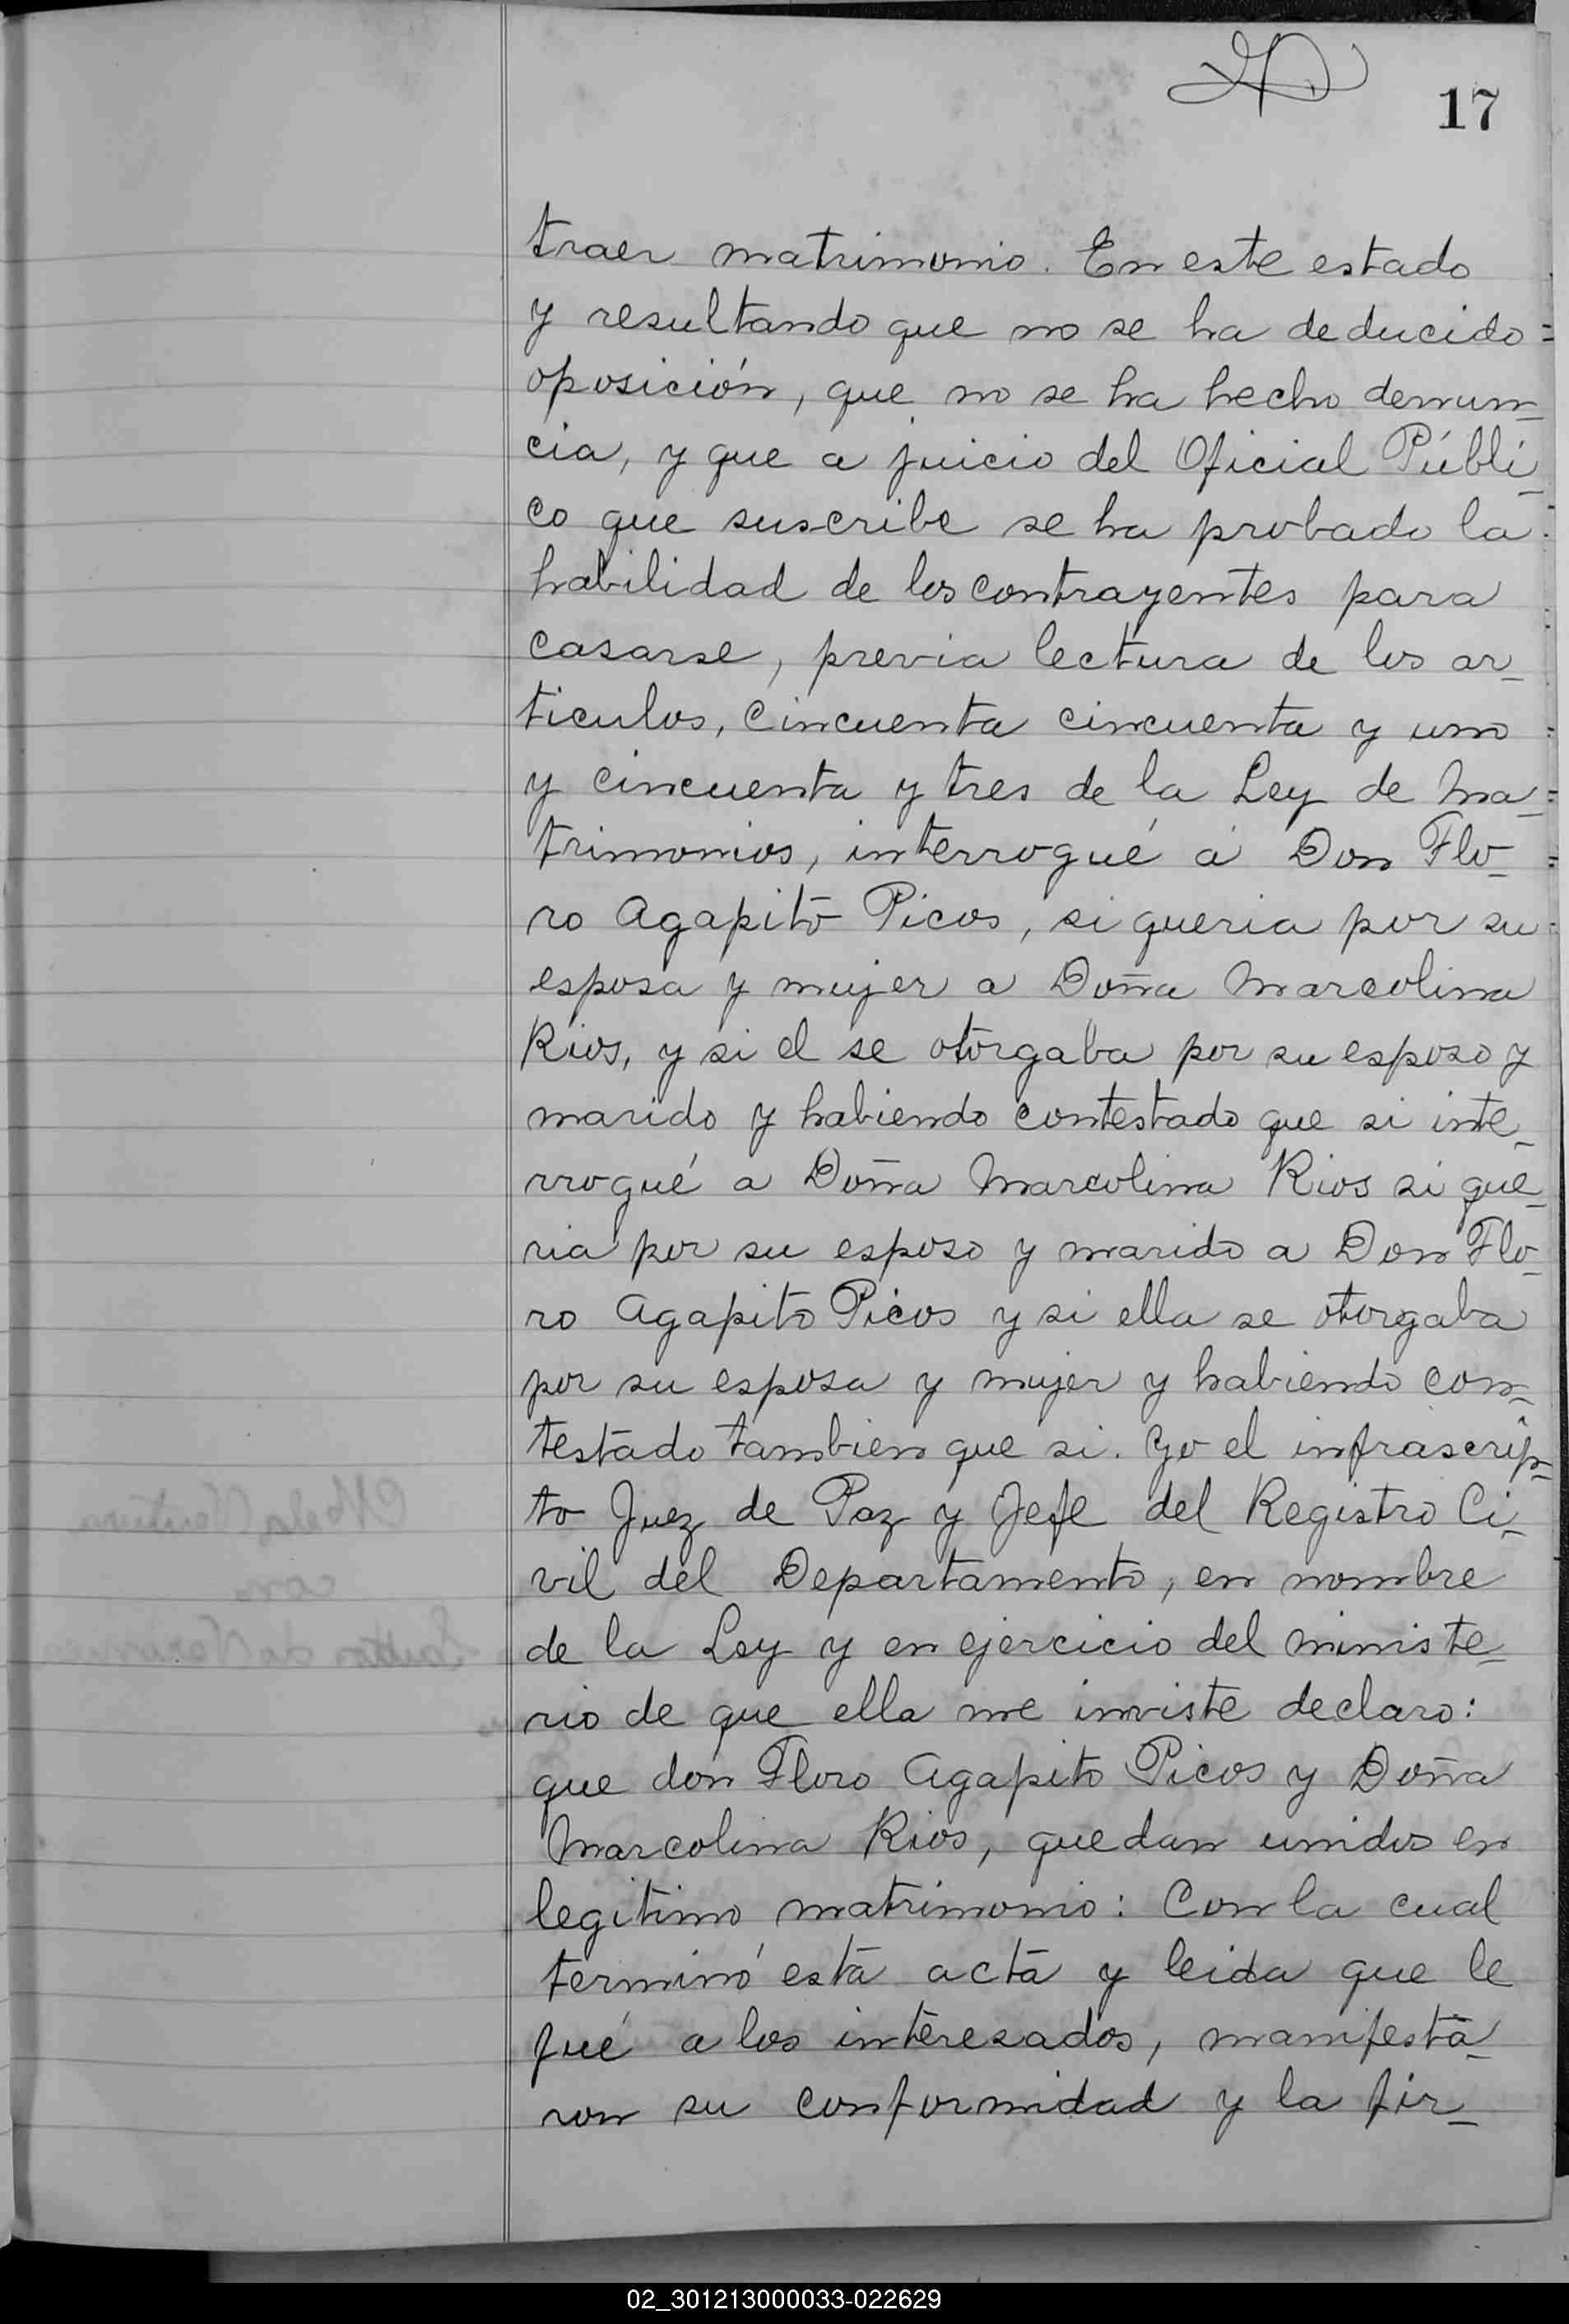 17
traer matrimonio. En este estado
y resultando que no se ha deducido =
oposición, que no se ha hecho denun_
cia, y que a juicio del Oficial Públi_
co que suscribe se ha probado la
habilidad de los contrayentes para
casarse, previa lectura de los ar_
ticulos, cincuenta cincuenta y uno =
y cincuenta y tres de la Ley de Ma_ =
trimonios, interrogué á Don Flo_ =
ro Agapito Picos, si queria por su
esposa y mujer a Doña Marcolina
Rios, y si el se otorgaba por su esposo y
marido y habiendo contestado que si inte_
rrogué a Doña Marcolina Rios si que_
ria por su esposo y marido a Don Flo_
ro Agapito Picos y si ella se otorgaba
por su esposa y mujer y habiendo con_
testado tambien que si. Yo el infrascrip_
to Juez de Paz y Jefe del Registro Ci_
vil del Departamento, en nombre
de la Ley y en ejercicio del ministe_
rio de que ella me inviste declaro:
que don Floro Agapito Picos y Doña
Marcolina Rios, quedan unidos en
legitimo matrimonio: Con la cual
terminó esta acta y leida que le
fué a los interesados, manifesta_
ron su conformidad y la fir_
02_301213000033-022629